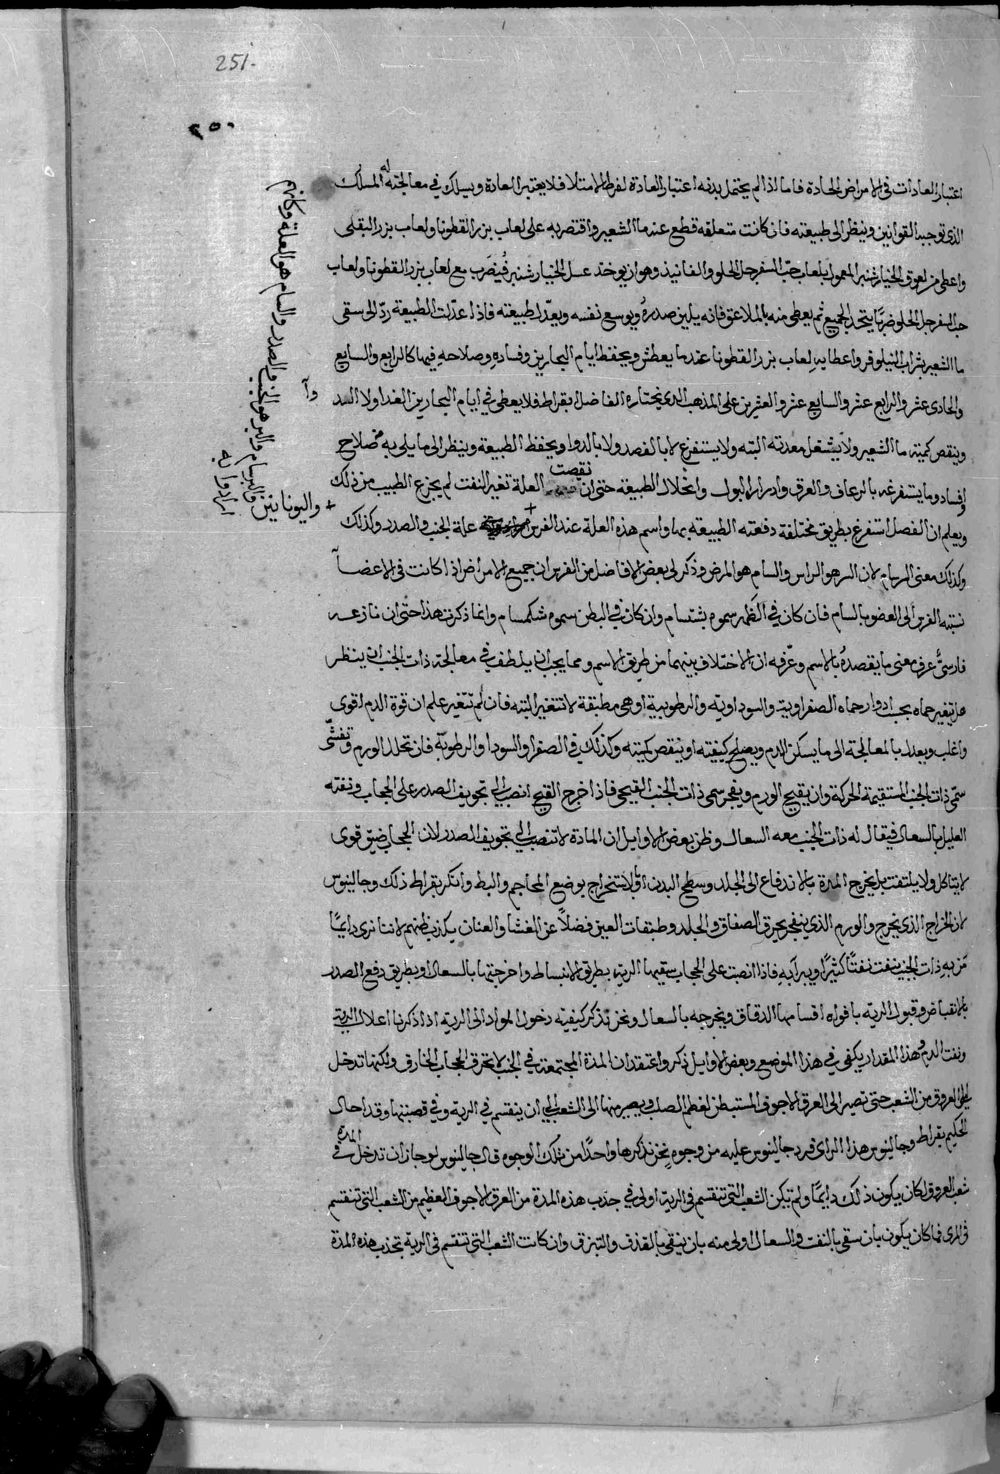 251.
٢٥٠
اعتبار العادات في الامراض الحادة فاما اذا لم يحتمل بدنه اعتبار العادة لفرط الامتلا فلا يعتبر العادة ويسلك في معالجته له المسلك
الذي توجبه القوانين وينظر الى طبيعته فان كانت متعلقه قطع عنه ما الشعير واقتصر به على لعاب بزر القطونا ولعاب بزر البقلى
واعطى من لعوق الخيار شنبر المعمول بلعاب حب السفرجل الحلو والفانيذ وهو ان يوخذ عسل الخيار شنبر فيضرب مع لعاب بزر القطونا ولعاب
حب السفرجل الحلو ضربًا يتحد الجميع ثم يعطى منه بالملاعق فانه يلين صدره ويوسع نفسه ويعدل طبيعته فاذا عدلت الطبيعة رد الى سقى
ما الشعير بشراب النيلوفر واعطا به لعاب بزر القطونا عندما يعطش ويحفظ ايام البحارين وفساده وصلاحه فيها كالرابع والسابع
والحادى عشر والرابع عشر والسابع عشر والعشرين على المذهب الذي يختاره الفاضل ابقراط فلا يعطى في ايام البحارين الغدا ولا
وينقص كمية ما الشعير ولا يشغل معدته البته ولا يستفرغ لا بالفصد ولا بالدوا ويحفظ الطبيعة وينظر الى ما يلى به من صلاح
وافساد وما يستفرغه بالرعاف والعرق وادرار البول وانحلال الطبيعة حتى ان نقصت العلة تغير النفث لم يجزع الطبيب من ذلك
ويعلم ان الفصل استفرغ بطريق مختلفة دفعته الطبيعة بها واسم هذه العلة عند الفرس + علة الجنب والصدر وكذلك
وكذلك معنى البرسام لان البر هو الراس والسام هو المرض وذكر لى بعض الافاضل من الفرس ان جميع الامراض اذا كانت في الاعضآ
نسبته الفرس الى العضو بالسام فان كان في الظهر سموه بشتسام وان كان في البطن سموه شكمسام وانما ذكرت هذا حتى ان نازعه
فارسي عرف معنى ما يقصده بالاسم وعرفه ان الاختلاف بينهما من طريق الاسم ومما يجب ان يلطف في معالجة ذات الجنب ان ينظر
هل يتغير حماه بحسب ادوار حماه الصفراوية والسوداوية والرطوبية او هى مطبقة لا تتغير البته فان لم تتغير علم ان قوة الدم اقوى
واغلب ويعدل بالمعالجة الى ما يسكن الدم ويصلح كيفيته او ينقص كميته وكذلك في الصفرا والسودا والرطوبة فان تحلل الورم وتفشى
سمى ذات الجنب المستقيمة الحركة وان يقيح الورم ويفجر سمى ذات الجنب القيحى فاذا خرج القيح انصب الى تجويف الصدر على الحجاب ونفثه
العليل بالسعال فيقال له ذات الجنب معه السعال وظن بعض الاوايل ان المادة لا تنصب الى تجويف الصدر لان الحجاب ضيق قوى
لا يتاكل ولا يلتفت بل يخرج المدة بالاندفاع الى الجلد وسطح البدن او بالاستخراج بوضع المحاجم والبط وانكر بقراط ذلك وجالينوس
لان الخراج الذي يخرج والورم الذي ينفجر يحرق الصفاق والجلد وطبقات العين فضلاً عن الغشا والعنان يكذب ظنهم لاننا نرى دايمًا
من به ذات الجنب ينفث نفثًا كثيرًا ويبرا به فاذا انصبت على الحجاب سقيها الرية بطريق الانبساط واخرجتها بالسعال او بطريق دفع الصدر
بالانقباض وقبول الرية بافواه اقسامها الدقاق ويخرجه بالسعال ونحن نذكر كيفية دخول المواد الى الرية اذا ذكرنا اعلال الرية
ونفث الدم وهذا المقدار يكفى في هذا الموضع وبعض الاوايل ذكر واعتقد ان المدة المجتمعة في الجنب لا يخرق الحجاب الخارق ولكنها تدخل
الى العروق من الشعب حتى تصير الى العرق الاجوف المستبطن لعظم الصلب ويصير منها الى الشعب الى ان ينقسم في الرية وفي قصبتها وقد احال
الحكيم بقراط وجالينوس هذا الراى فرد جالينوس عليه من وجوه نحن نذكرها واحدًا من تلك الوجوه قال جالينوس لو جاز ان تدخل المدة في
شعب العروق لكان يكون ذلك دايمًا ولم تكن الشعب التي تنقسم في الرية اولى في جذب هذه المدة من العرق الاجوف العظيم من الشعب التي تنقسم
في المرى فما كان يكون بان سقى بالنفث والسعال اولى منه بان ينقى بالقذف والتبزق وان كانت الشعب التي تنقسم في الرية تجذب هذه المدة
+ واليونانيين والبرسام والبر هو الجنب والصدر والسام هو العلة وكانهم
وآ